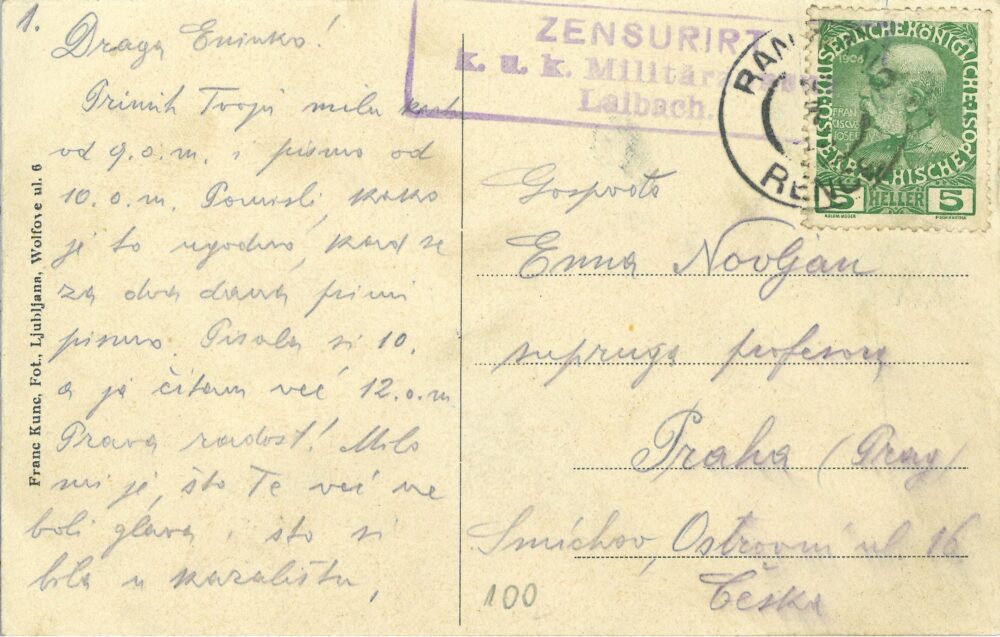 1.
Draga Eminko!
Primih Tvoju milu kartu
od 9.o.m. i pismo od
10.o.m. Pomisli, kako
je to ugodno, kad se
za dva dana primi
pismo. Pisala si 10.
a ja čitam već 12.o.m
Prava radost! Milo
mi je, što Te već ne
boli glava, što si
bila u kazalištu,
Franc Kunc, Fot., Ljubljana, Wolfove ul. 6
ZENSURIRT
k. u. k.
Laibach.
RENČE
1908
5 HELLER 5
Gospođa
Emna Novljan
supruga profesora
Praha (Prag)
Smíchov, Ostrovní ul. 16
Češka
100